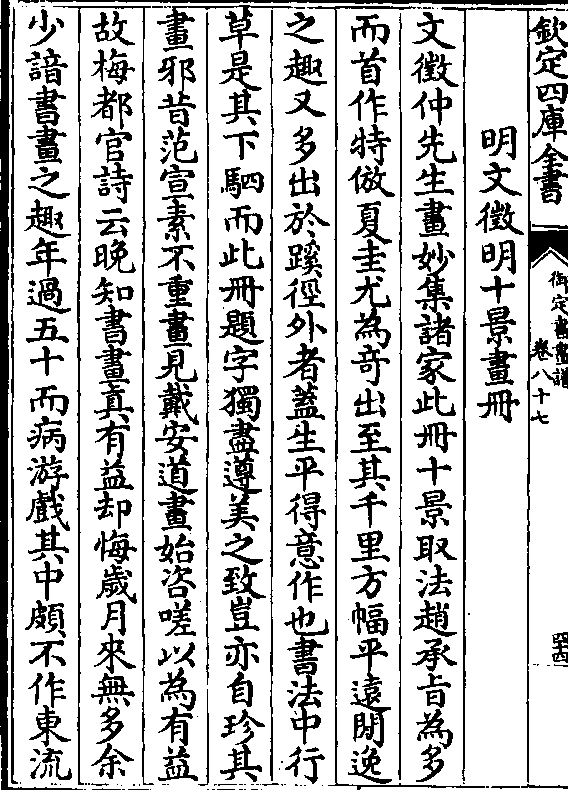 欽定四庫全書
御定書畫譜
卷八十七
四十四
明文徵明十景畫冊
文徵仲先生畫妙集諸家此冊十景取法趙承旨為多
而首作特倣夏圭尤為奇出至其千里方幅平遠閒逸
之趣又多出於蹊徑外者蓋生平得意作也書法中行
草是其下駟而此冊題字獨盡遵美之致豈亦自珍其
畫邪昔范宣素不重畫見戴安道畫始咨嗟以為有益
故梅都官詩云晚知書畫真有益却悔歲月來無多余
少諳書畫之趣年過五十而病游戲其中頗不作東流